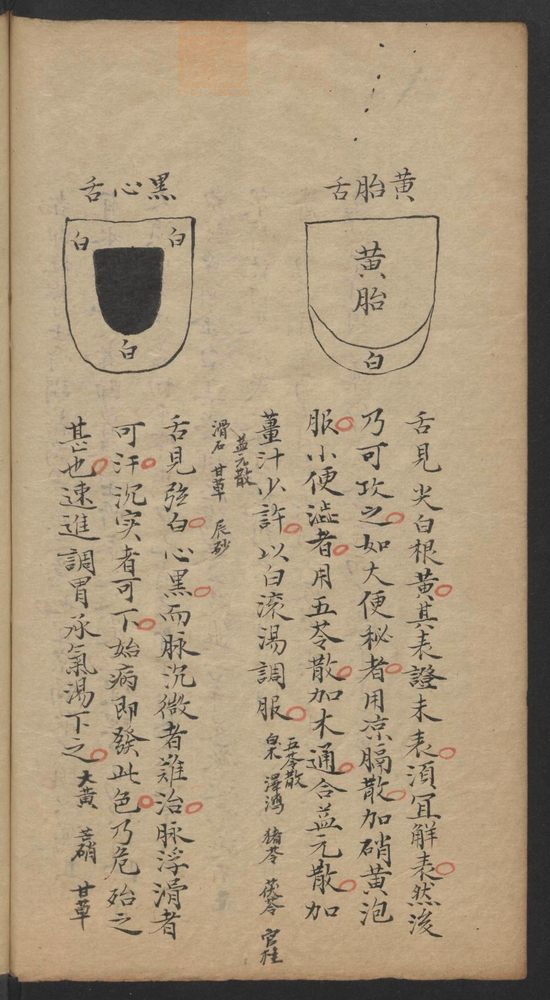 黄胎舌
黄胎
白
舌見尖白根黄其表證未表須宜解表然後
乃可攻之如大便秘者用凉膈散加硝黄泡
服小便澁者用五苓散加木通合益元散加
薑汁少許以白滚湯調服
五苓散
白术 澤瀉 猪苓 茯苓 官桂
益元散
滑石 甘草 辰砂
黑心舌
白
白
白
舌見弦白心黑而脉沉微者難治脉浮滑者
可汗沉实者可下始病即發此色乃危殆之
甚也速進調胃承氣湯下之
大黄 芒硝 甘草